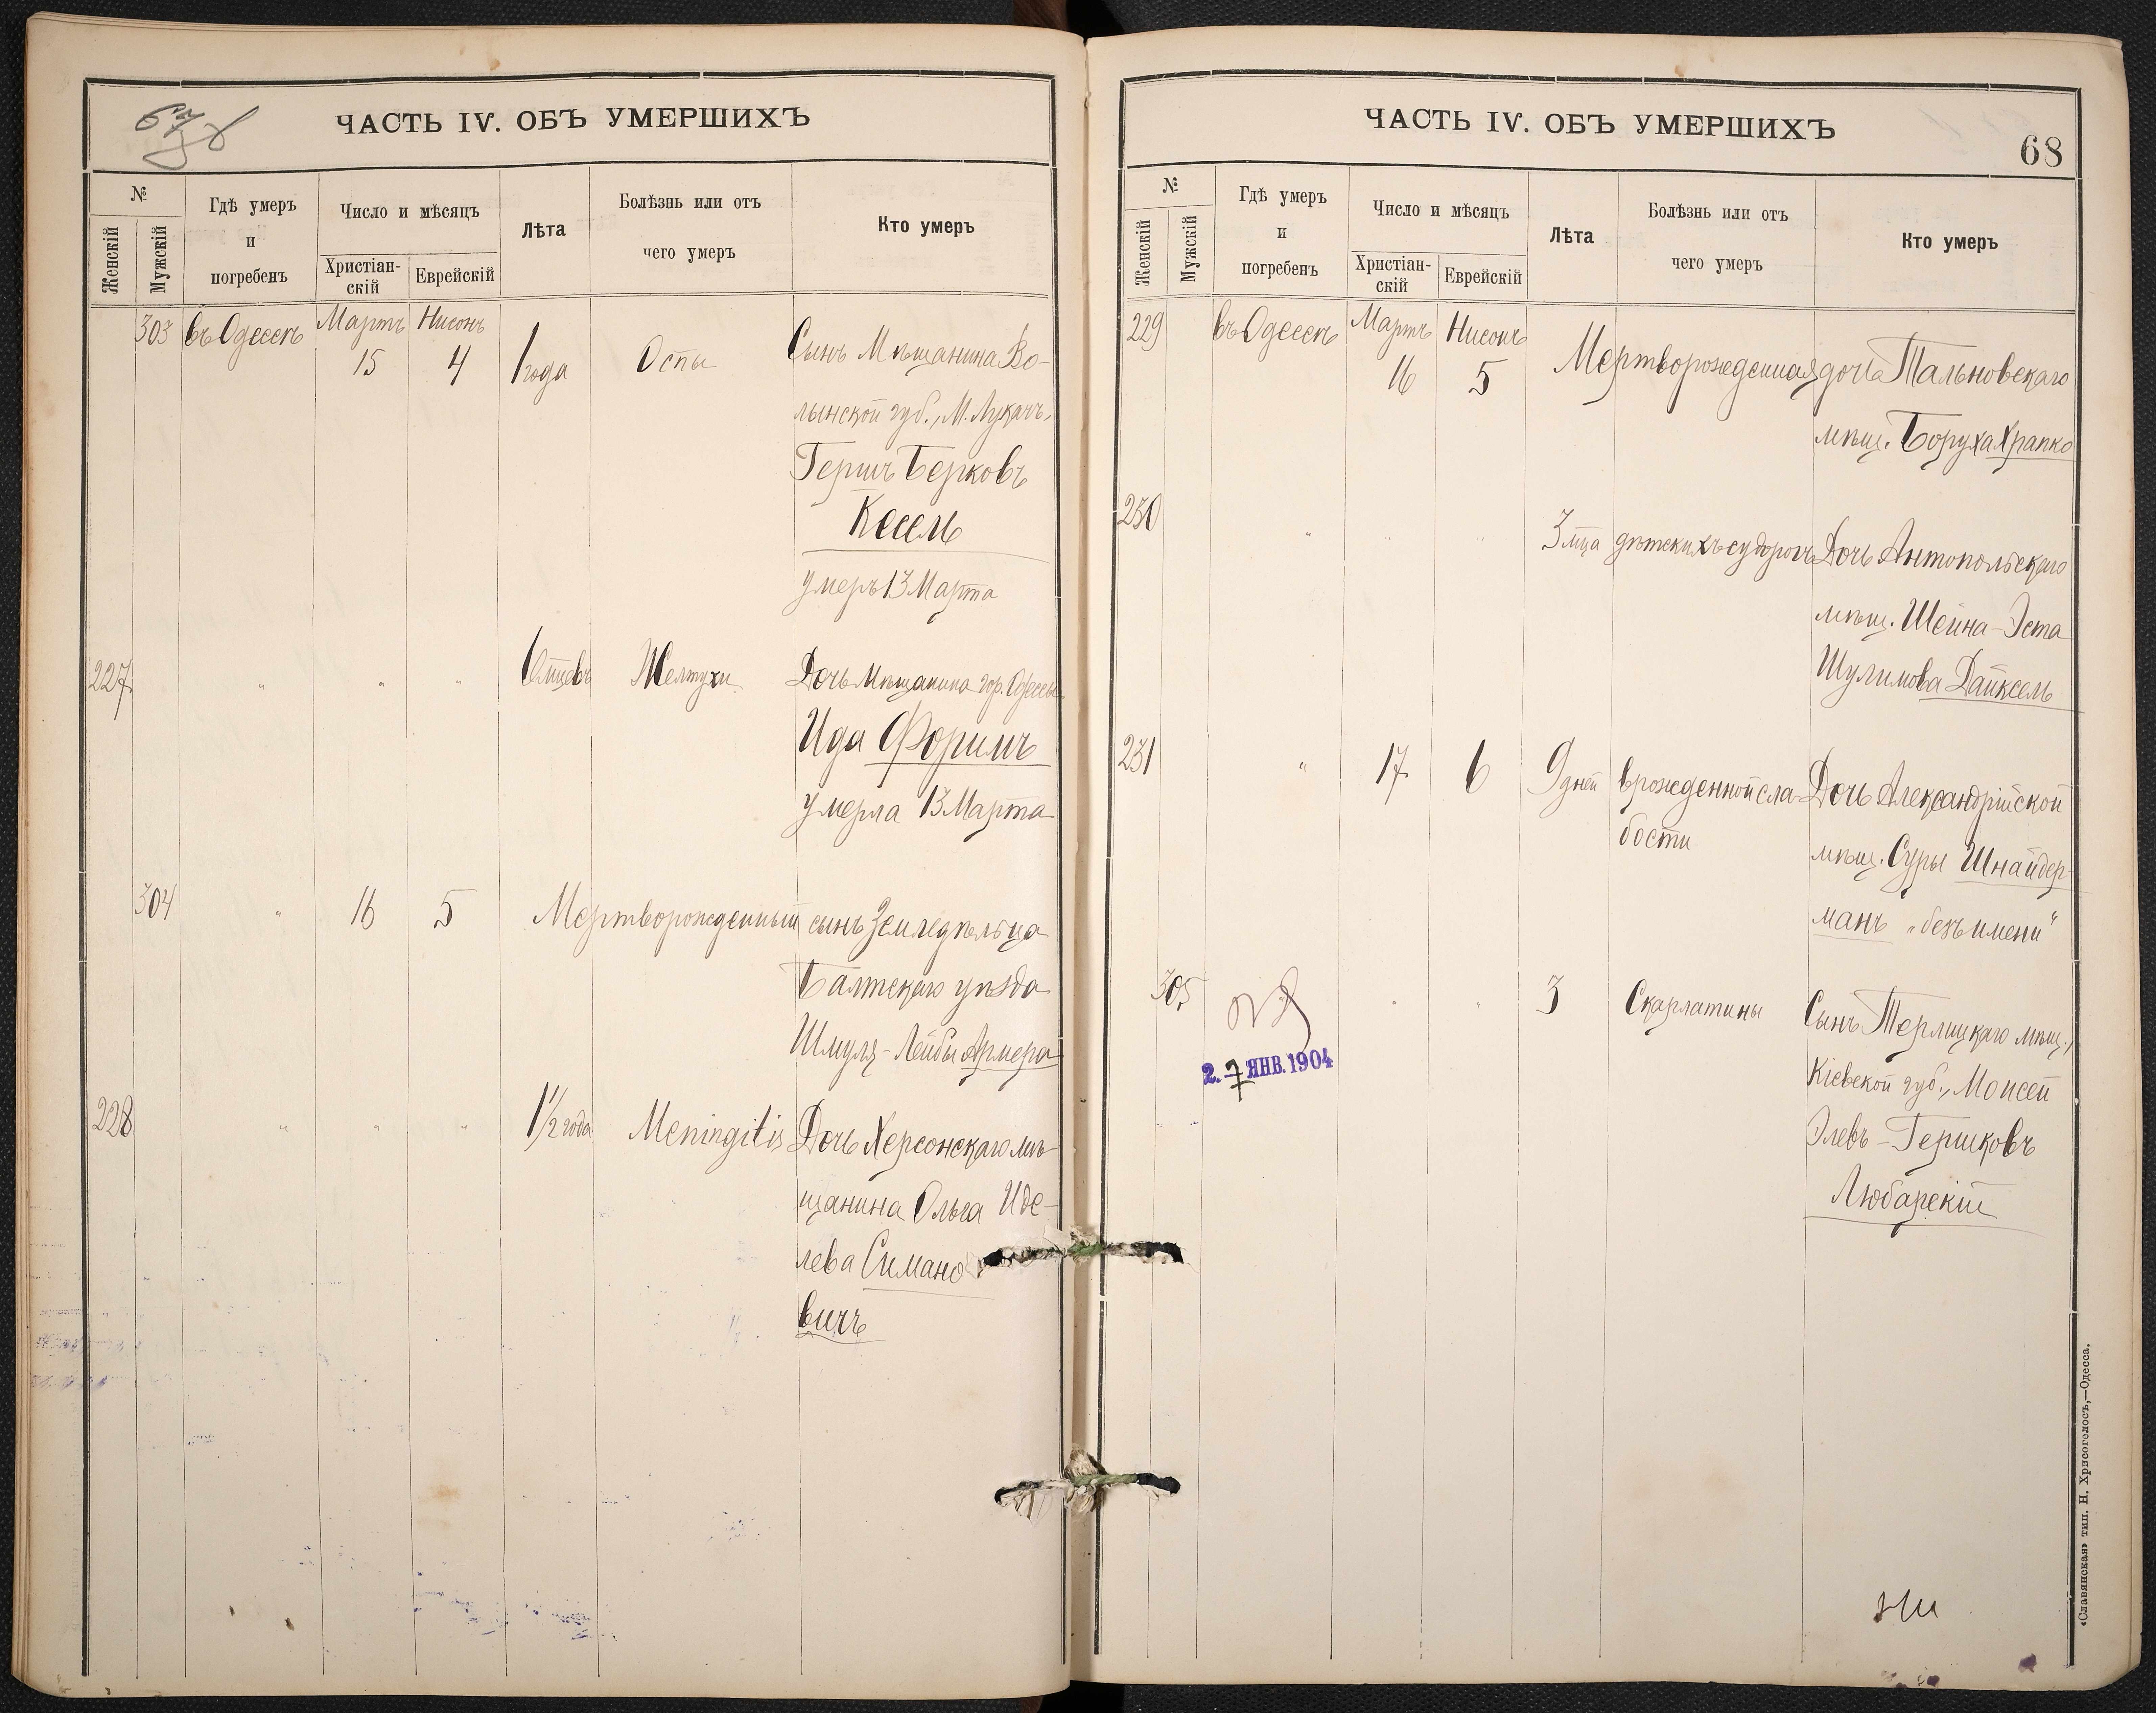 ЧАСТЬ IV. ОБЪ УМЕРШИХЪ
№
Женскій
Мужскій
Гдѣ умеръ
и
погребенъ
Число и мѣсяцъ
Христіан-
скій
Еврейскій
Лѣта
Болѣзнь или отъ
чего умеръ
Кто умеръ
303 въ Одессѣ Мартъ Нисонъ
15 4 1 года Оспы Сынъ Мѣщанина Во-
лынской губ., М. Лукачъ,
Гершъ Берковъ
Кесель
умеръ 13 Марта
227 " " " Желтухи Дочь Мѣщанина гор. Одессы
Ида Форимъ
умерла 13 Марта
304 " 16 5 Мертворожденный сынъ Земледѣльца
Балтскаго уѣзда
Шмуля-Лейбы Армера
228 " " " 1½ года Meningitis Дочь Херсонскаго мѣ-
щанина Ольга Иде-
лева Симано
вичъ
ЧАСТЬ IV. ОБЪ УМЕРШИХЪ
68
№
Женскій
Мужскій
Гдѣ умеръ
и
погребенъ
Число и мѣсяцъ
Христіан-
скій
Еврейскій
Лѣта
Болѣзнь или отъ
чего умеръ
Кто умеръ
229 въ Одессѣ Мартъ Нисонъ
16 5 Мертворожденная дочь Тальновскаго
мѣщ. Боруха Храпко
230 " " " 3 мца дѣтскихъ судорогъ Дочь Антопольскаго
мѣщ. Шейна-Эста
Шулимова Дайксель
231 " 17 6 9 дней врожденной сла- Дочь Александрійской
бости мѣщ. Суры Шнайдер-
манъ „безъ имени“
305 " " 3 Скарлатины Сынъ Терлицкаго мѣщ.,
Кіевской губ., Моисей
Элевъ-Гершковъ
Любарскій
2. 7 ЯНВ. 1904
«Славянская» тип. Н. Хрисогелосъ,—Одесса.